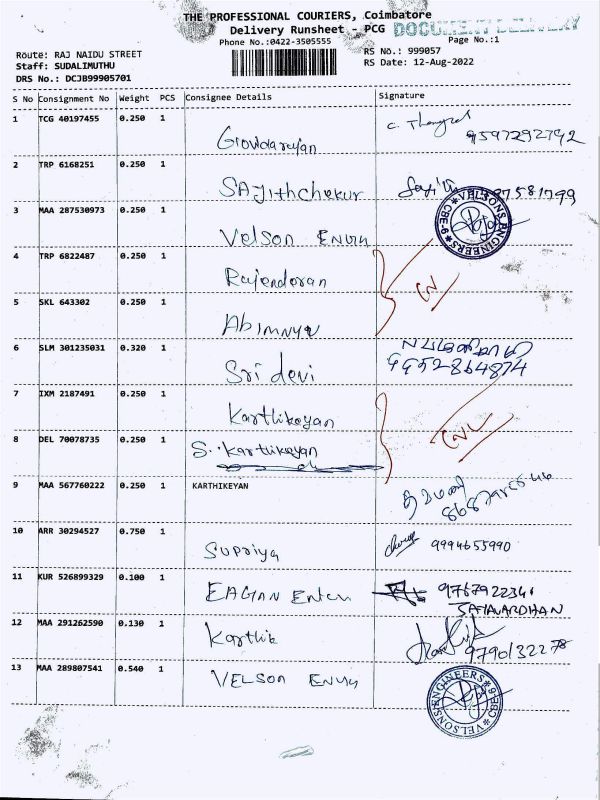 THE PROFESSIONAL COURIERS, Coimbatore
Delivery Runsheet - PCG DOCUMENT DELIVERY
Phone No.:0422-3505555 Page No.:1
Route: RAJ NAIDU STREET RS No.: 999057
Staff: SUDALIMUTHU RS Date: 12-Aug-2022
DRS No.: DCJB99905701
S No Consignment No Weight PCS Consignee Details Signature
1 TCG 40197455 0.250 1
2 TRP 6168251 0.250 1 SAJithchekur
3 MAA 287530973 0.250 1 Velson
VELSONS ENGINEERS CBE-6
4 TRP 6822487 0.250 1 Rajendoran
5 SKL 643302 0.250 1
6 SLM 301235031 0.320 1 Sri devi 9952864874
7 IXM 2187491 0.250 1 Karthikeyan
8 DEL 70078735 0.250 1 S. Karthikeyan
9 MAA 567760222 0.250 1 KARTHIKEYAN
10 ARR 30294527 0.750 1 Supriya 9994655990
11 KUR 526899329 0.100 1 EAGAN
12 MAA 291262590 0.130 1 Karthik 9790132278
13 MAA 289807541 0.540 1 VELSON
VELSONS ENGINEERS CBE-6